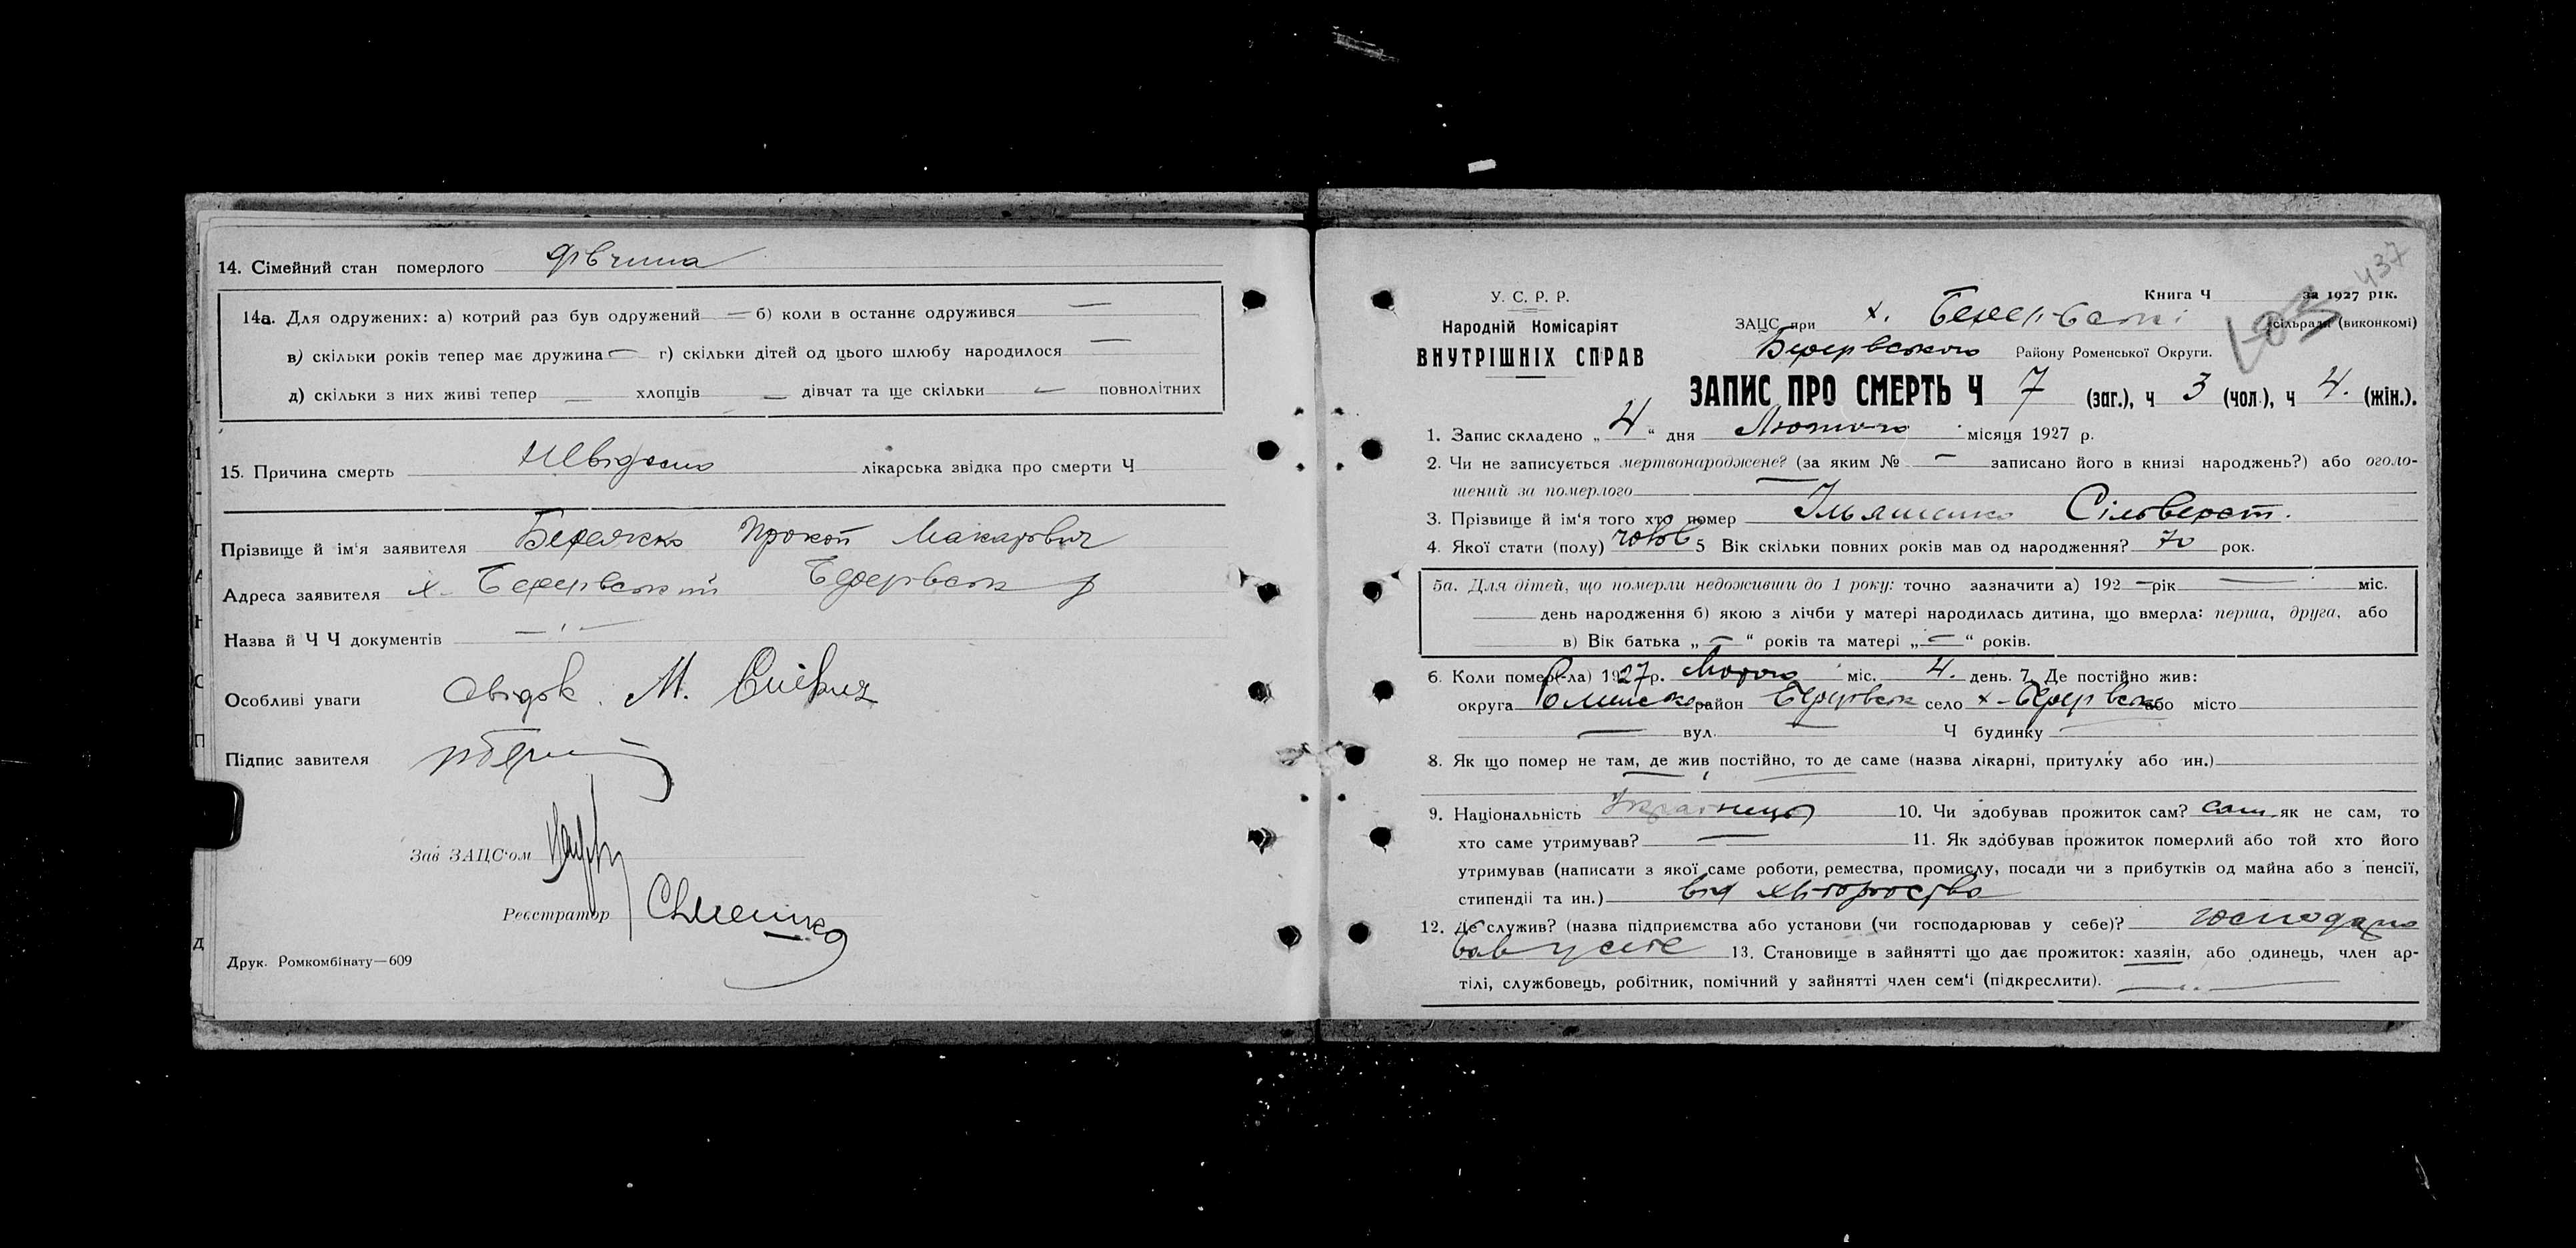 14. Сімейний стан померлого дівчина
14а. Для одружених: а) котрий раз був одружений — б) коли в останнє одружився —
в) скільки років тепер має дружина — г) скільки дітей од цього шлюбу народилося —
д) скільки з них живі тепер — хлопців — дівчат та ще скільки — повнолітних
15. Причина смерть Невідомо лікарська звідка про смерти Ч
Прізвище й ім'я заявителя Прокоп Макарович
Адреса заявителя х.
Назва й Ч Ч документів —
Особливі уваги свідок. М.
Підпис завителя
Зав ЗАЦС'ом
Реєстратор
Друк. Ромкомбінату—609
437
У. С. Р. Р.
Народній Комісаріят
ВНУТРІШНІХ СПРАВ
Книга Ч за 1927 рік.
ЗАЦС при х. сільради (виконкомі)
Району Роменської Округи.
ЗАПИС ПРО СМЕРТЬ Ч 7 (заг.), ч 3 (чол.), ч 4. (жін.).
1. Запис складено „ 4 " дня Лютого місяця 1927 р.
2. Чи не записується мертвонароджене? (за яким № — записано його в книзі народжень?) або оголо-
шений за померлого —
3. Прізвище й ім'я того хто помер Ільяшенко Сільверст.
4. Якої стати (полу) чолов 5 Вік скільки повних років мав од народження? 70 рок.
5а. Для дітей, що померли недоживши до 1 року: точно зазначити а) 192 — рік — міс.
день народження б) якою з лічби у матері народилась дитина, що вмерла: перша, друга, або
в) Вік батька „ — " років та матері „ — " років.
6. Коли помер(-ла) 1927 р. Лютого міс. 4. день. 7. Де постійно жив:
округа район село х- або місто
— вул. — Ч будинку —
8. Як що помер не там, де жив постійно, то де саме (назва лікарні, притулку або ин.)
9. Національність Українець 10. Чи здобував прожиток сам? сам як не сам, то
хто саме утримував? — 11. Як здобував прожиток померлий або той хто його
утримував (написати з якої саме роботи, ремества, промислу, посади чи з прибутків од майна або з пенсії,
стипендії та ин.) від хліборобства
12. Де служив? (назва підприємства або установи (чи господарював у себе)? господарю
вав у себе 13. Становище в зайнятті що дає прожиток: хазяін, або одинець, член ар-
тілі, службовець, робітник, помічний у зайнятті член сем'ї (підкреслити). —